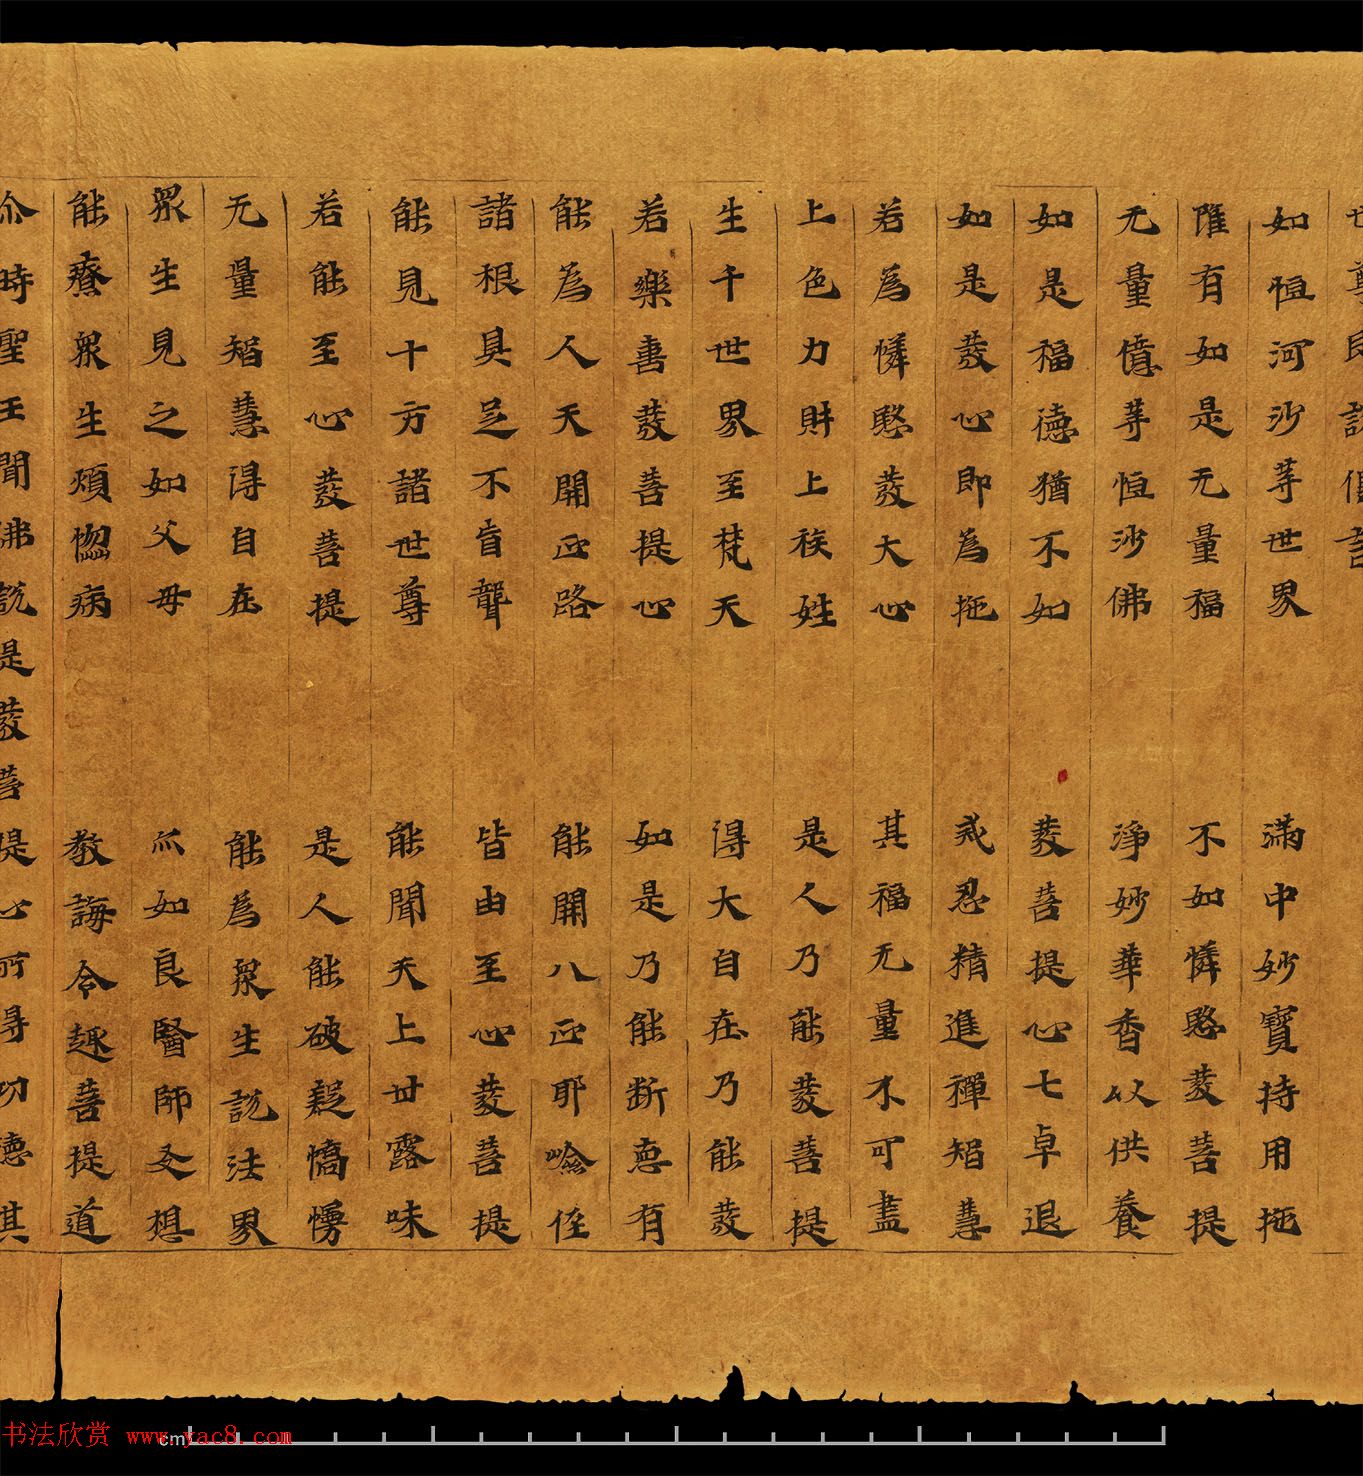 世尊即說偈言
如恒河沙等世界　滿中妙寶持用拖
唯有如是无量福　不如憐愍發菩提
无量億等恒沙佛　淨妙華香以供養
如是福德猶不如　發菩提心七卓退
如是發心即為拖　戒忍精進禪智慧
若為憐愍發大心　其福无量不可盡
上色力財上族姓　是人乃能發菩提
生千世界至梵天　得大自在乃能發
若樂善發菩提心　如是乃能斷惡有
能為人天開正路　能開八正耶嶮徑
諸根具足不盲聾　皆由至心發菩提
能見十方諸世尊　能聞天上甘露味
若能至心發菩提　是人能破疑憍慢
无量智慧得自在　能為眾生說法界
眾生見之如父母　亦如良醫師友想
能療眾生煩惱病　教誨令趣菩提道
尒時聖王聞佛說是發菩提心所得功德其
书法欣赏 www.yac8.com
cm